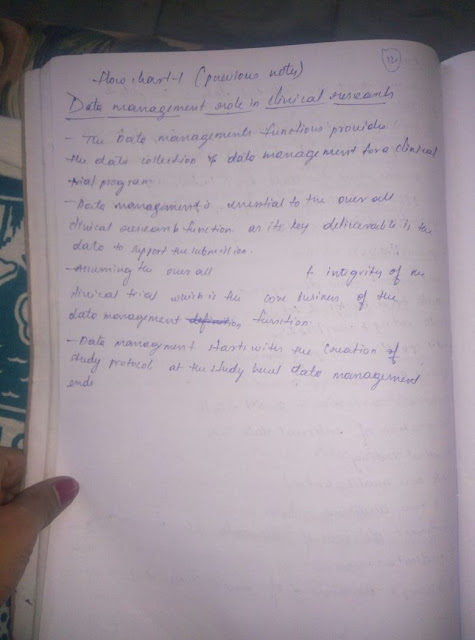 12
Flow chart-1 (previous notes)
Data management role in clinical research
- The Data managements functions provide
the data collection & data management for a clinical
trial program
- Data management is essential to the over all
clinical research function as its key deliverable is the
data to support the submission.
- Assuming the over all integrity of the
clinical trial which is the core business of the
data management definition function.
- Data managment starts with the creation of
study protocol at the study level data management
ends